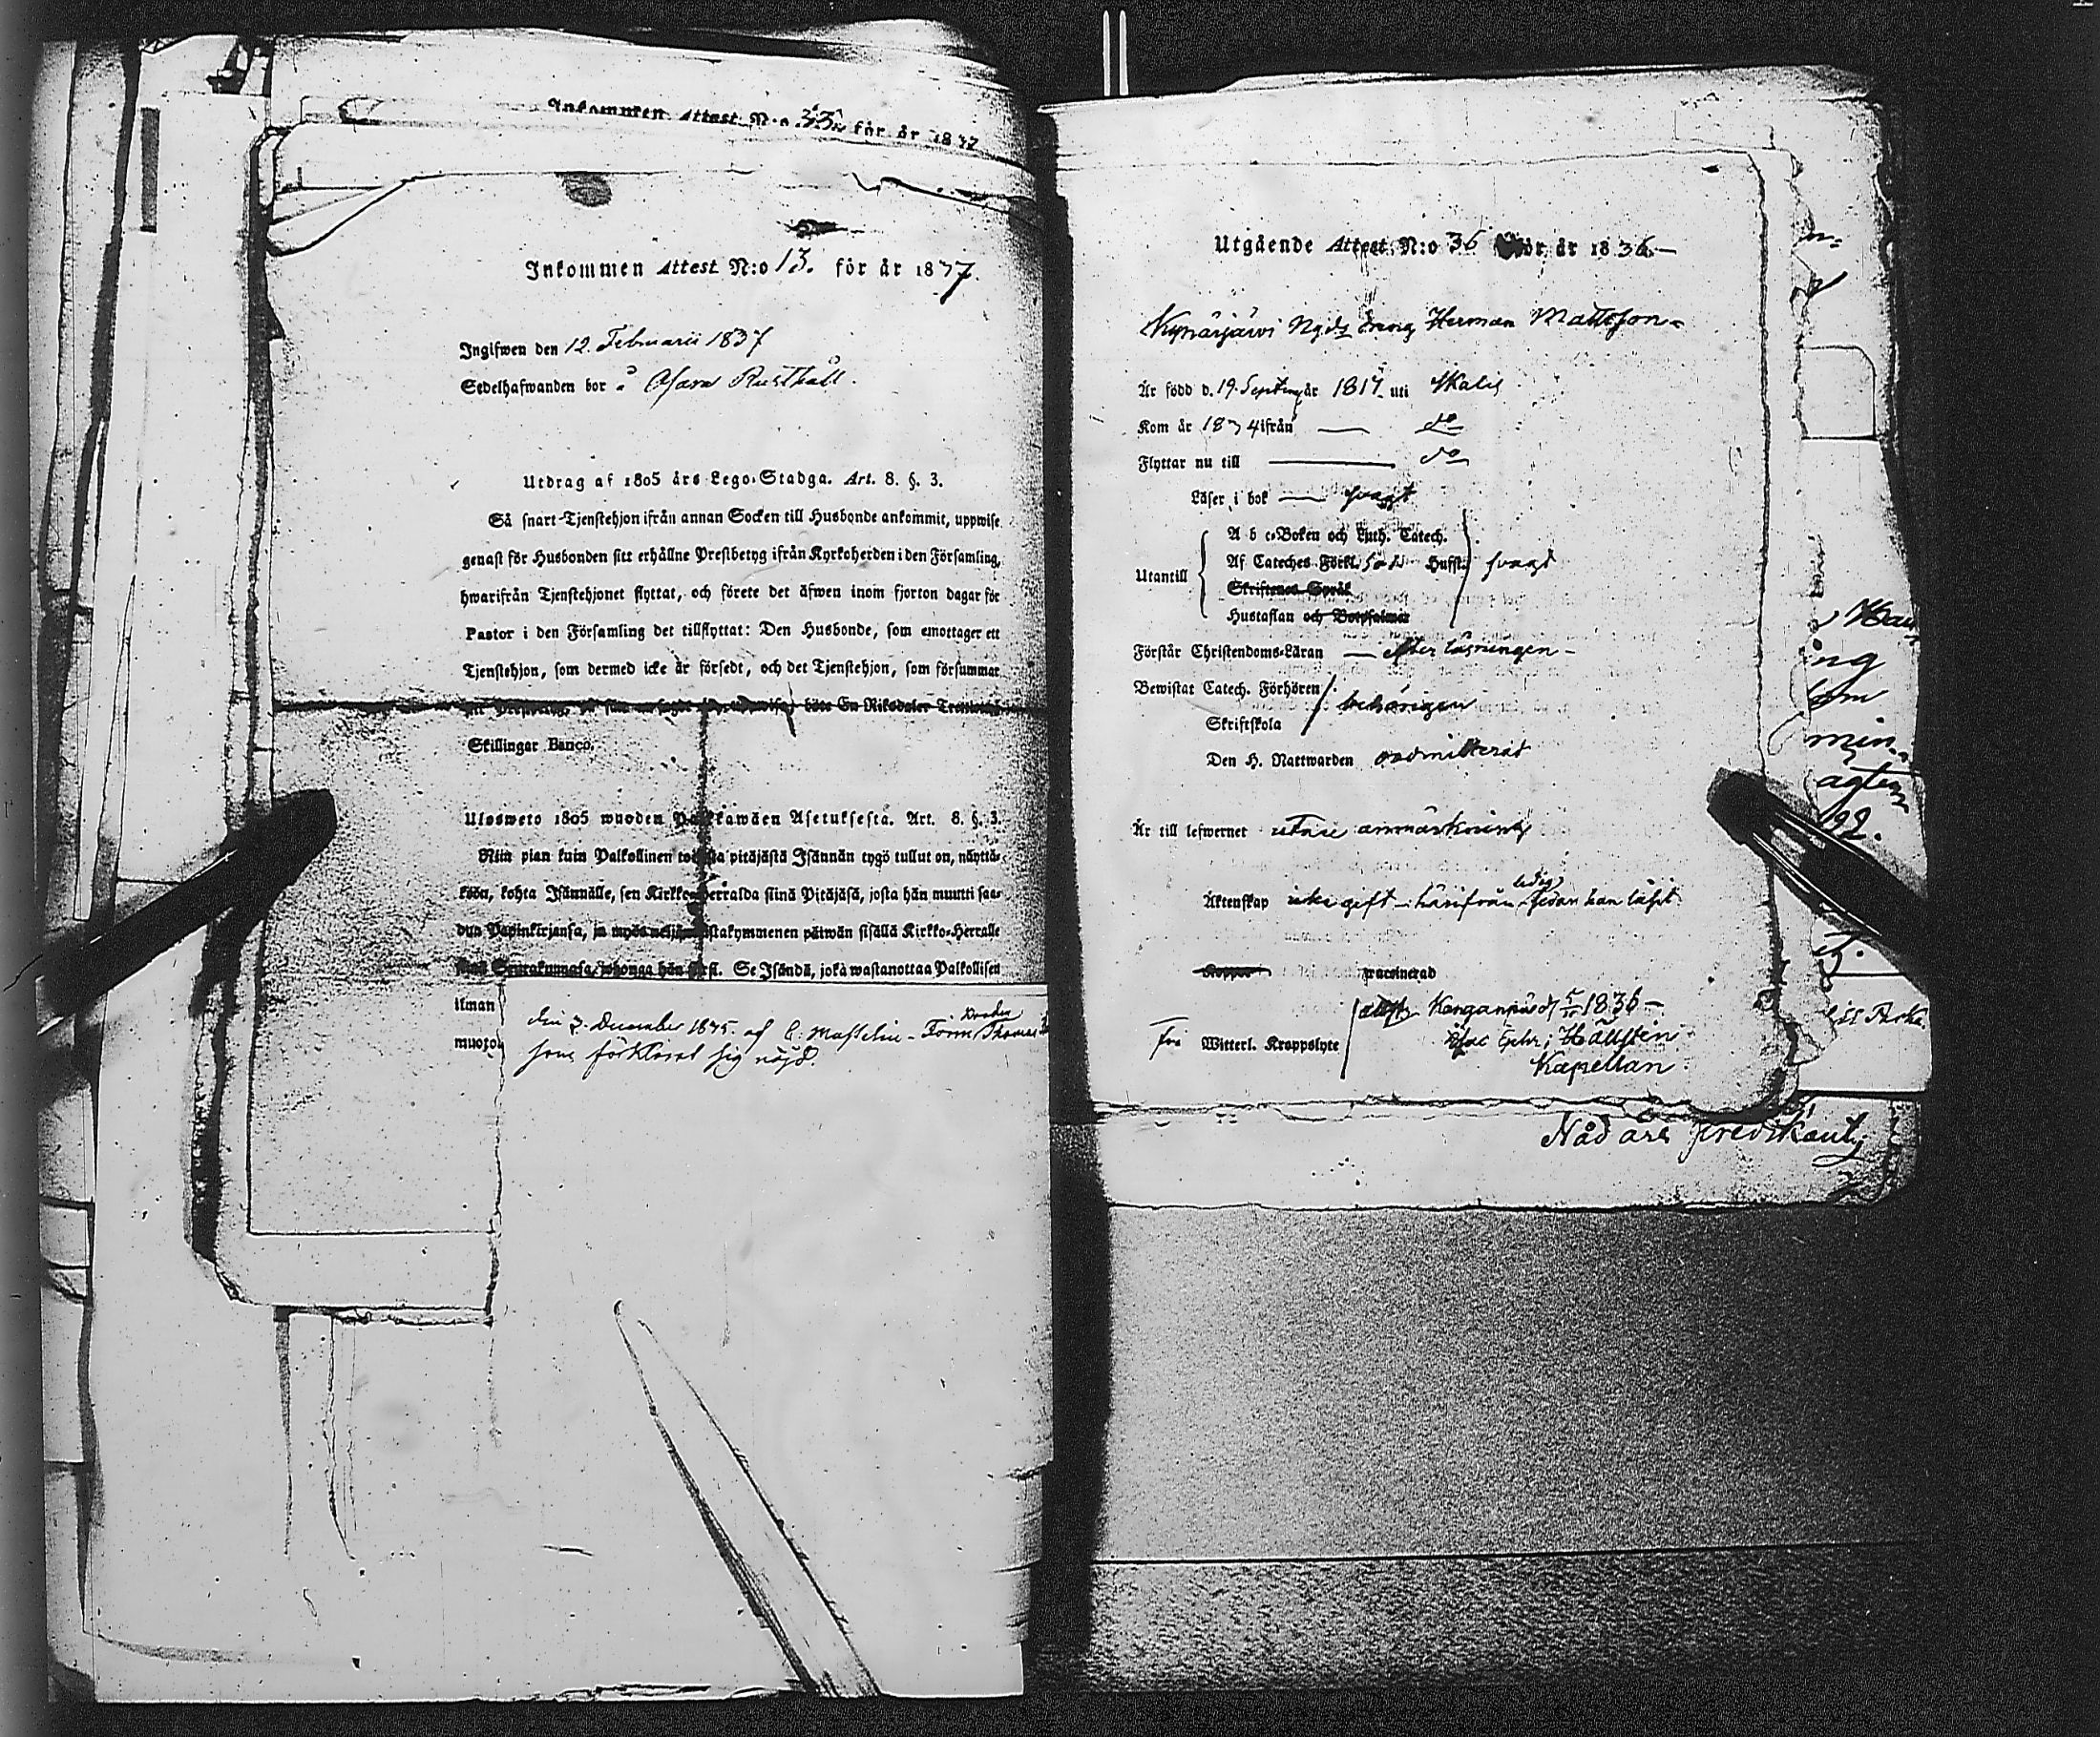 Inkommen Attest N:o 33. för år 1837
Inkommen Attest N:o 13. för år 1837.
Ingifwen den 12. Februarii 1837
Sedelhafwanden bor å Rusthåll.
Utdrag af 1805 års Lego-Stadga. Art. 8. §. 3.
Så snart Tjenstehjon ifrån annan Socken till Husbonde ankommit, uppwise
genast för Husbonden sitt erhållne Prestbetyg ifrån Kyrkoherden i den Församling,
hwarifrån Tjenstehjonet flyttat, och förete det äfwen inom fjorton dagar för
Pastor i den Församling det tillflyttat: Den Husbonde, som emottager ett
Tjenstehjon, som dermed icke är försedt, och det Tjenstehjon, som försummar
böte En Riksdaler
Skillingar Banco.
Ulosweto 1805 wuoden Palkkawäen Asetuksesta. Art. 8. §. 3.
Niin pian kuin Palkollinen toisesta pitäjästä Isännän tygö tullut on, näyttä-
köön, kohta Isännälle, sen Kirkko-Herralda siinä Pitäjäsä, josta hän muutti saa-
dun Papinkirjansa, ja myös neljäntoistakymmenen päiwän sisällä Kirkko-Herralle
siinä Seurakunnasa, johonga hän Se Isändä, joka wastanottaa Palkollisen
ilman
muotoi
den 3. December 1835. af C. Masselin
som förklarat sig nöjd.
Utgående Attest N:o 36 för år 1836
Kynärjärvi Ngds dreng Herman Mattsson
Är född d. 19. Septemb. år 1817 uti Ikalis
Kom år 1834 ifrån — do
Flyttar nu till — do
Läser i bok — svagt
A b c-Boken och Luth. Catech.
Utantill Af Cateches Förkl. Hufst. svagt
Skriftenes Språk
Hustaflan och Botpsalmer
Förstår Christendoms-Läran — efter läsningen
Bewistat Catech. Förhören
behörigen
Skriftskola
Den H. Nattwarden admitterad
Är till lefwernet utan anmärkning
ledig
Äktenskap icke gift härifrån
Koppor vaccinerad
1836
Fri Witterl. Kroppslyte Hällsten
Kapellan
Nåd års predikant
ng